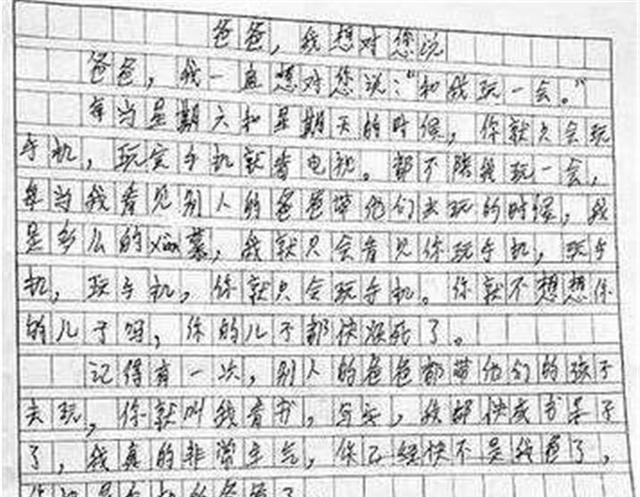 爸爸，我想对您说
爸爸，我一直想对您说：“和我玩一会。”
每当星期六和星期天的时候，你就只会玩
手机，玩完手机就看电视。都不陪我玩一会，
每当我看见别人的爸爸带他们去玩的时候，我
是多么的xian慕，我就只会看见你玩手机，玩手
机，玩手机，你就只会玩手机。你就不想想你
的儿子吗，你的儿子都快烦死了。
记得有一次，别人的爸爸都带他们的孩子
去玩，你就叫我看书，写字，我都快成书呆子
了，我真的非常生气，你已经快不是我爸了，
是手机的爸爸了